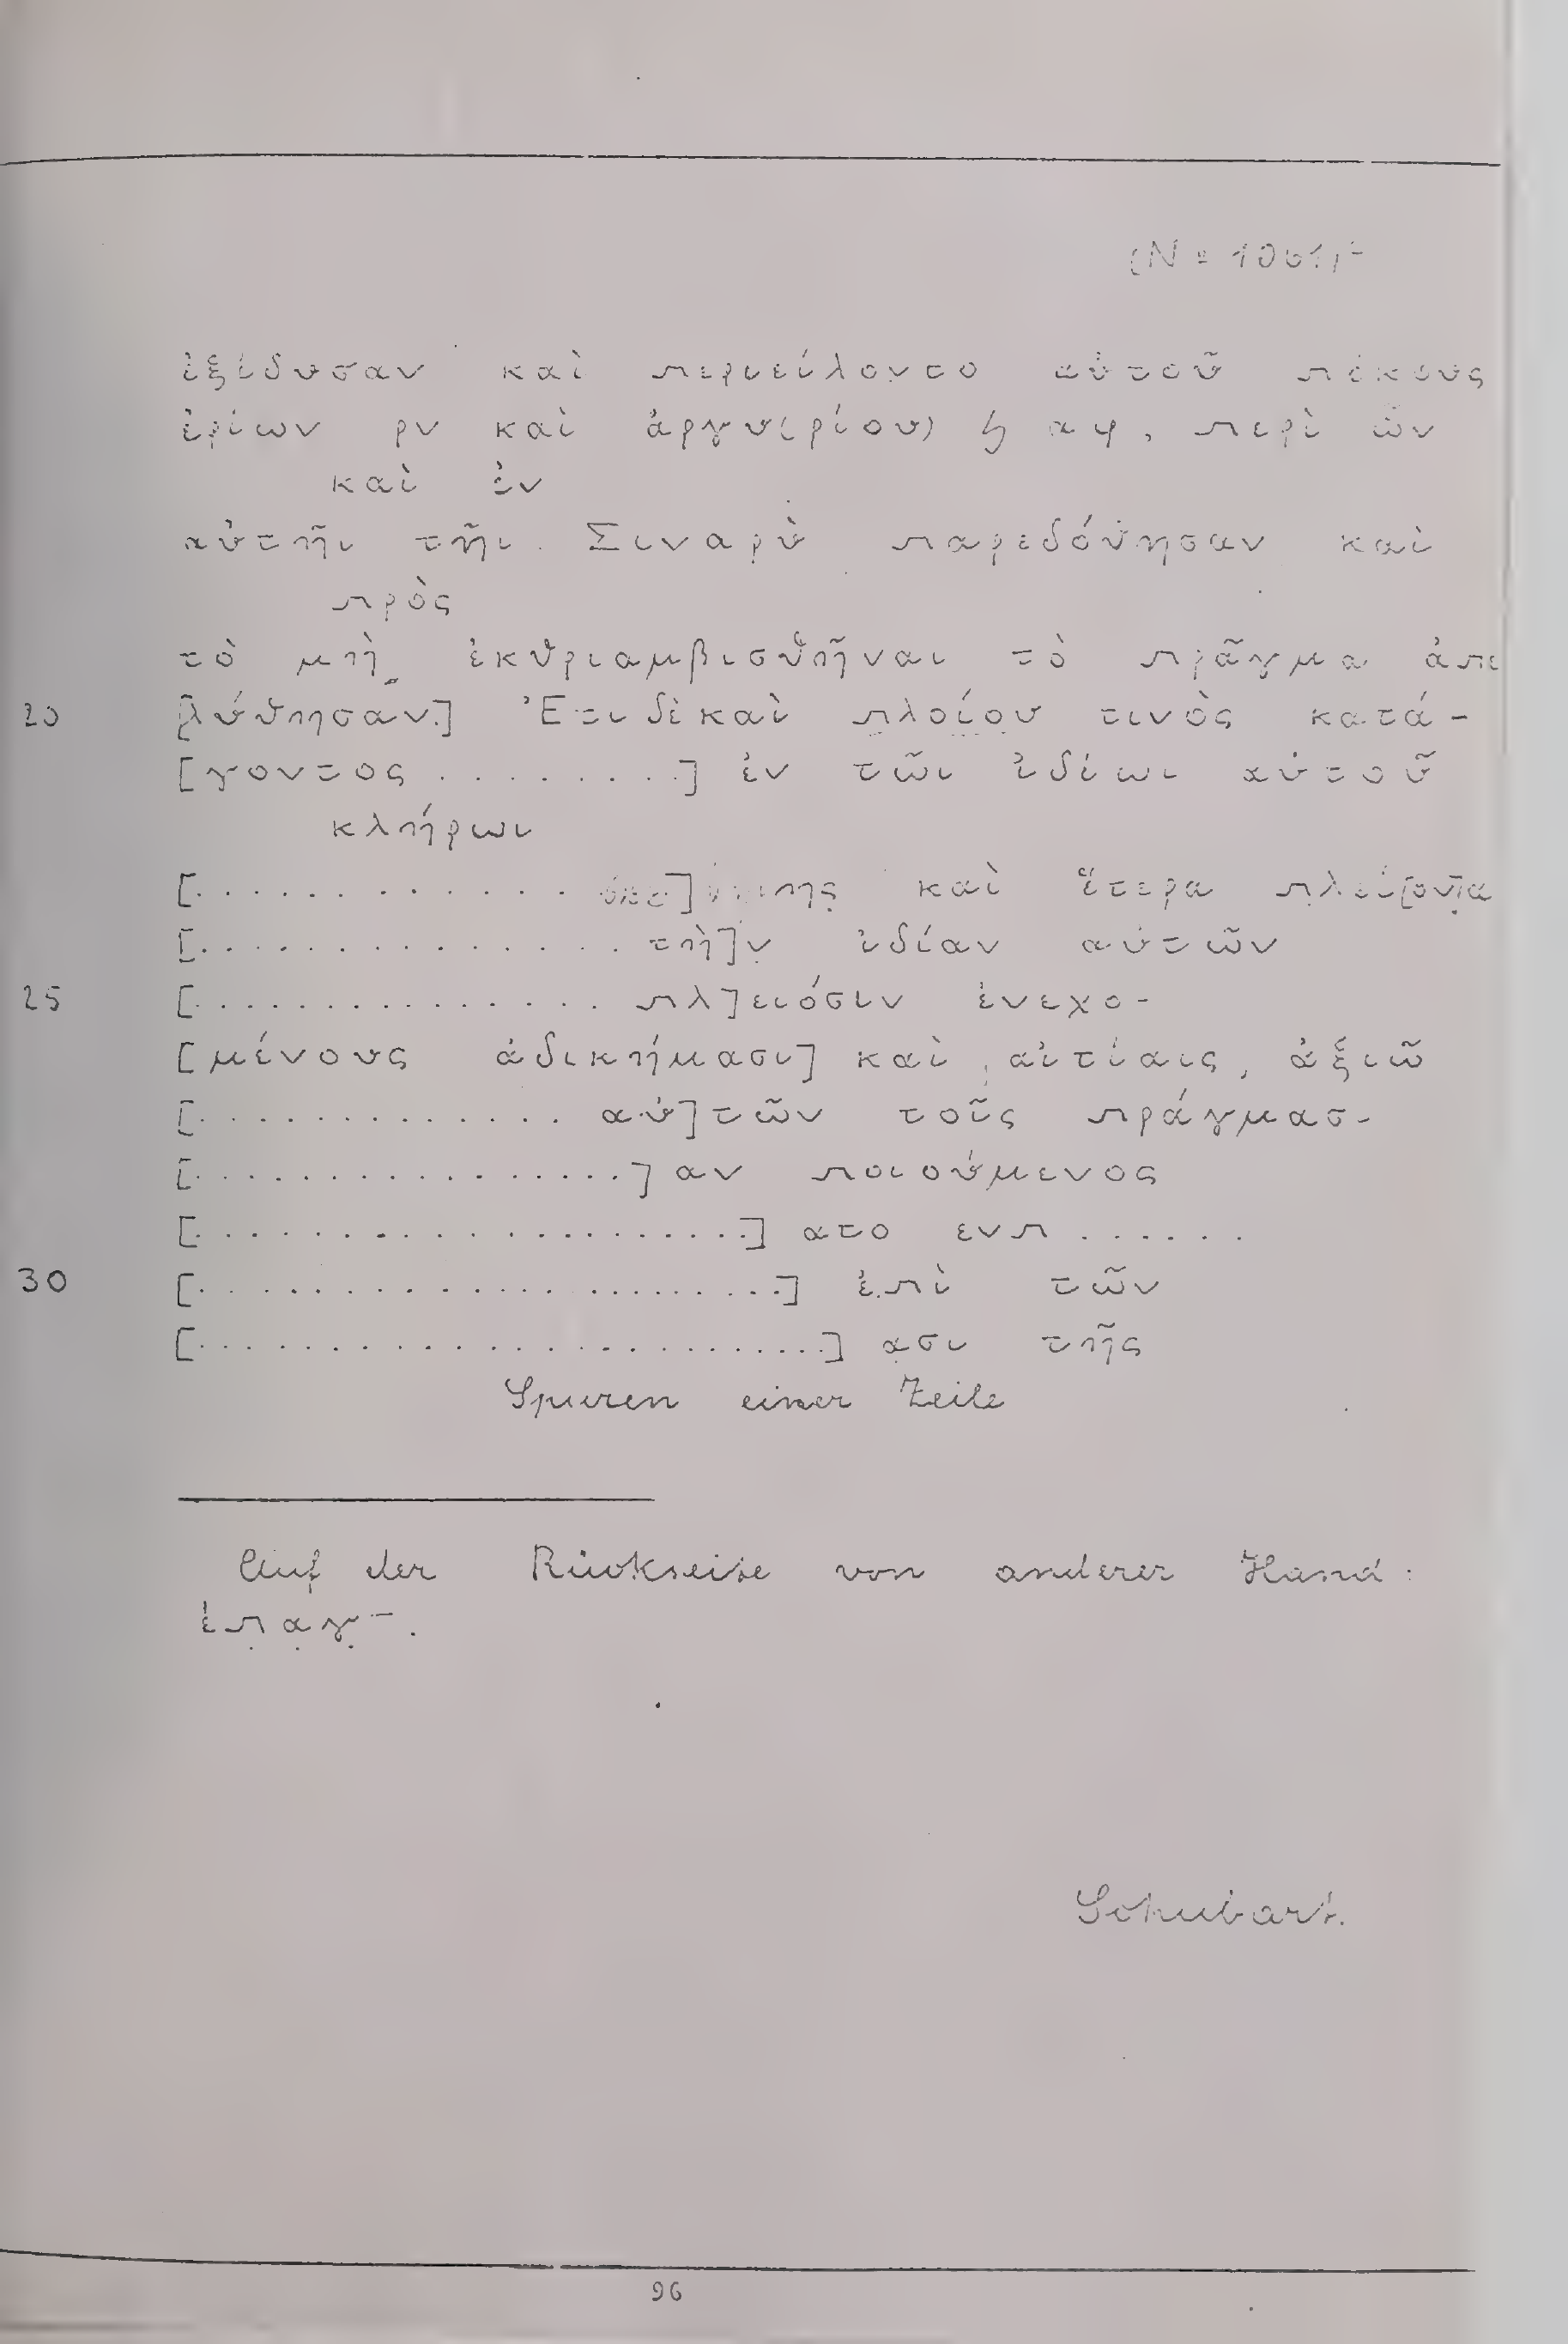 (N = 1061)
ἐξέδυσαν καὶ περιείλοντο αὐτοῦ πόκους
ἐρίων ρν καὶ ἀργυ(ρίου) ϟ αφ, περὶ ὧν
καὶ ἐν
αὐτῆι τῆι Σιναρὺ παρεδόθησαν καὶ
πρὸς
τὸ μὴ ἐκθριαμβισθῆναι τὸ πρᾶγμα ἀπε
20 [λύθησαν.] Ἔτι δὲ καὶ πλοίου τινὸς κατά-
[γοντος . . . . . . . .] ἐν τῶι ἰδίωι αὐτοῦ
κλήρωι
[. . . . . . . . . . . . . καὶ ἕτερα πλεί[ον]τα
[. . . . . . . . . . . . . . τὴ]ν ἰδίαν αὐτῶν
25 [. . . . . . . . . . . . . . πλ]ειόσιν ἐνεχο-
[μένους ἀδικήμασι] καὶ αἰτίαις, ἀξιῶ
[. . . . . . . . . . . . . αὐ]τῶν τοῖς πράγμασ-
[. . . . . . . . . . . . . . . .]αν ποιούμενος
[. . . . . . . . . . . . . . . . . . . .]ατο ενπ . . . . . .
30 [. . . . . . . . . . . . . . . . . . . . .] ἐπὶ τῶν
[. . . . . . . . . . . . . . . . . . . . . .]ασι τῆς
Spuren einer Zeile
Auf der Rückseite von anderer Hand:
ἐπαγ‾.
Schubart.
96